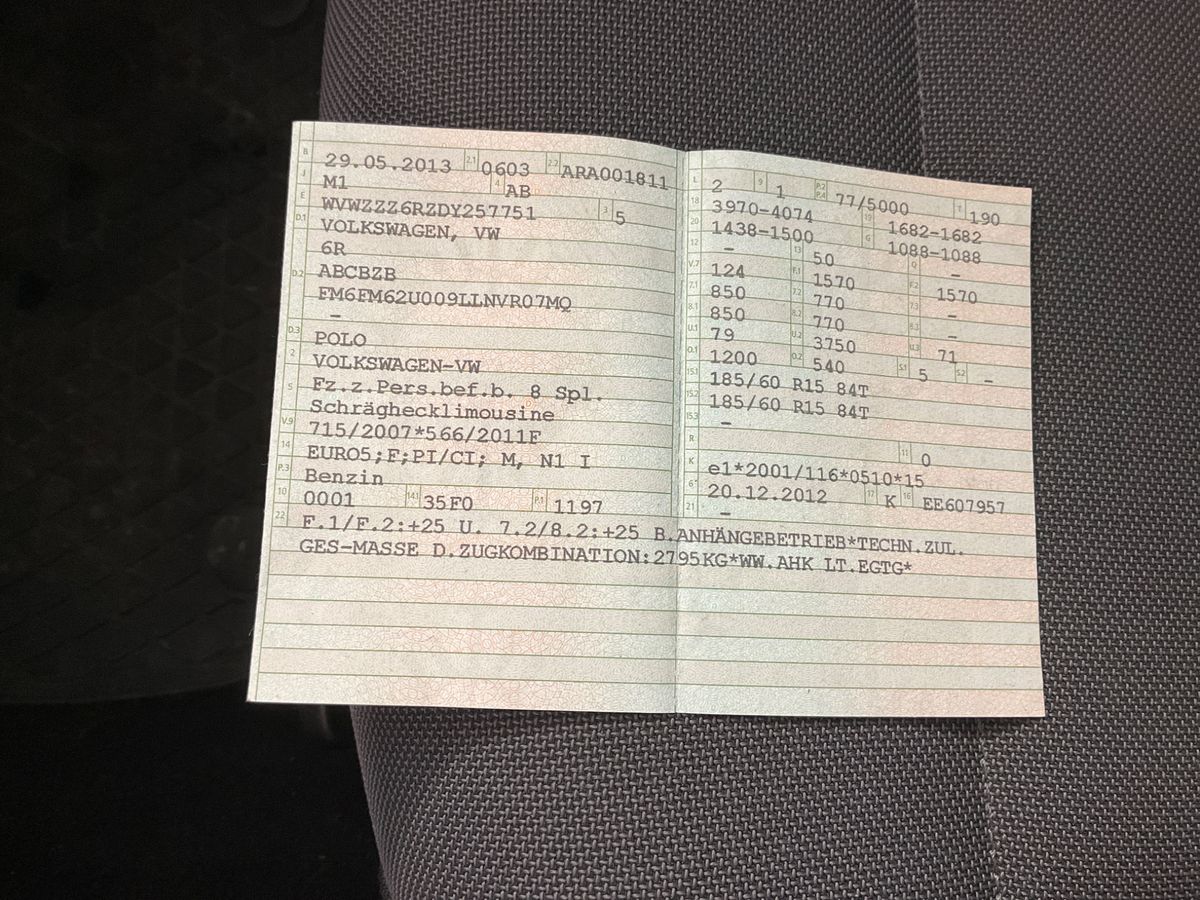 B 29.05.2013 2.1 0603 2.2 ARA001811
J M1 4 AB
E WVWZZZ6RZDY257751 3 5
D.1 VOLKSWAGEN, VW
6R
D.2 ABCBZB
FM6FM62U009LLNVR07MQ
–
D.3 POLO
2 VOLKSWAGEN-VW
5 Fz.z.Pers.bef.b. 8 Spl.
Schräghecklimousine
V.9 715/2007*566/2011F
14 EURO5;F;PI/CI; M, N1 I
P.3 Benzin
10 0001 14.1 35F0 P.1 1197
L 2 9 1 P.2 P.4 77/5000 T 190
18 3970-4074 19 1682-1682
20 1438-1500 G 1088-1088
12 – 13 50 Q –
V.7 124 F.1 1570 F.2 1570
7.1 850 7.2 770 7.3 –
8.1 850 8.2 770 8.3 –
U.1 79 U.2 3750 U.3 71
O.1 1200 O.2 540 S.1 5 S.2 –
15.1 185/60 R15 84T
15.2 185/60 R15 84T
15.3 –
R 11 0
K e1*2001/116*0510*15
6 20.12.2012 17 K 16 EE607957
21 –
22 F.1/F.2:+25 U. 7.2/8.2:+25 B.ANHÄNGEBETRIEB*TECHN.ZUL.
GES-MASSE D.ZUGKOMBINATION:2795KG*WW.AHK LT.EGTG*